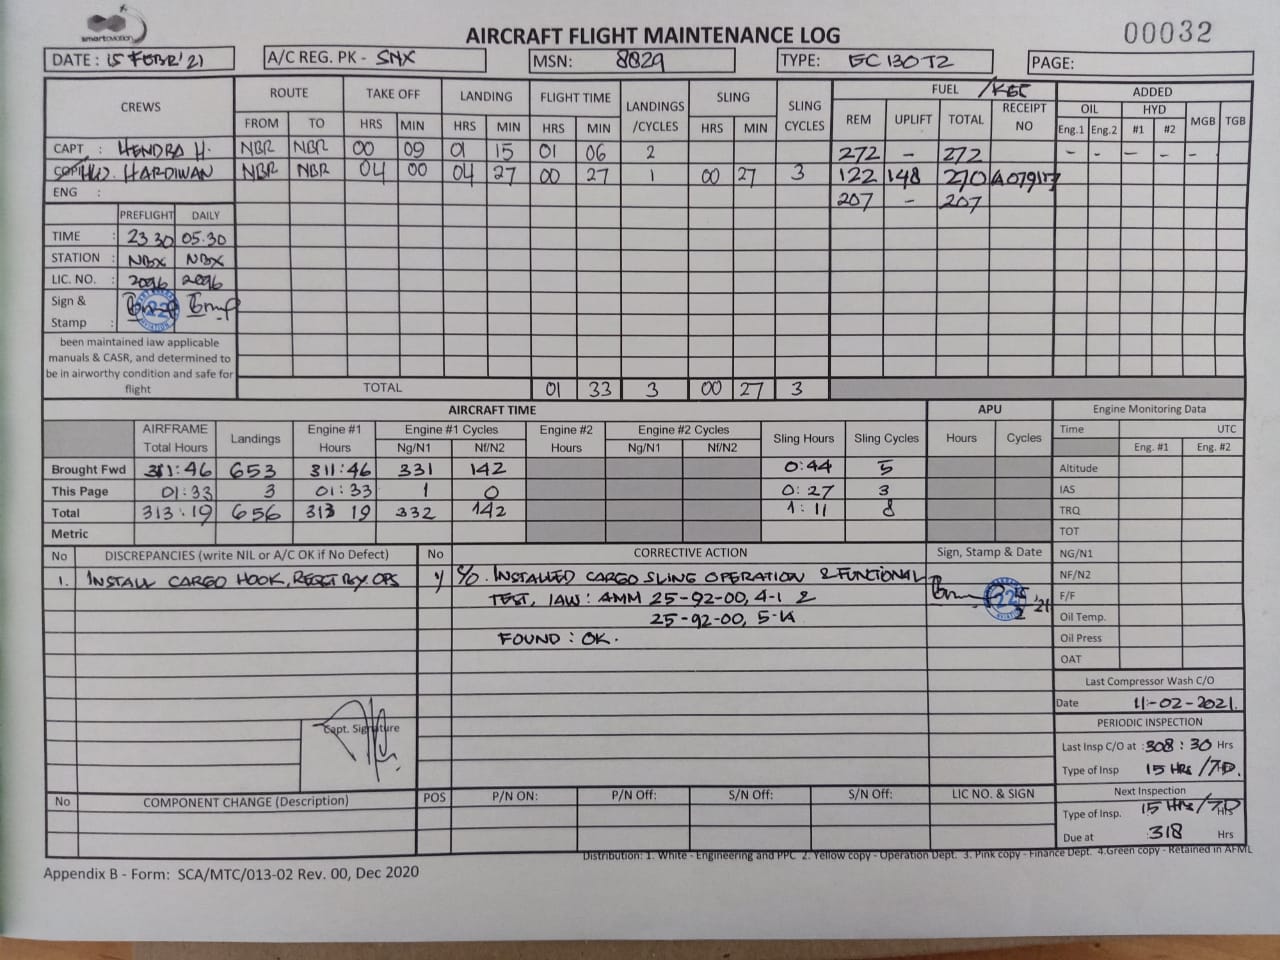 smartaviation
AIRCRAFT FLIGHT MAINTENANCE LOG
00032
DATE : 15 FEBR '21
A/C REG. PK - SNX
MSN: 8029
TYPE: EC 130 T2
PAGE:
CREWS ROUTE TAKE OFF LANDING FLIGHT TIME LANDINGS /CYCLES SLING SLING CYCLES FUEL /KEC ADDED
FROM TO HRS MIN HRS MIN HRS MIN HRS MIN REM UPLIFT TOTAL RECEIPT NO OIL HYD MGB TGB
Eng.1 Eng.2 #1 #2
CAPT : HENDRA H. NBR NBR 00 09 01 15 01 06 2 272 - 272 - - - - -
HARDIWAN NBR NBR 04 00 04 27 00 27 1 00 27 3 122 148 270
ENG : 207 - 207
PREFLIGHT DAILY
TIME : 23 30 05.30
STATION : NBX NBX
LIC. NO. : 2096 2096
Sign & Stamp :
been maintained iaw applicable
manuals & CASR, and determined to
be in airworthy condition and safe for
flight
TOTAL 01 33 3 00 27 3
AIRCRAFT TIME APU Engine Monitoring Data
AIRFRAME Total Hours Landings Engine #1 Hours Engine #1 Cycles Engine #2 Hours Engine #2 Cycles Sling Hours Sling Cycles Hours Cycles Time UTC
Ng/N1 Nf/N2 Ng/N1 Nf/N2 Eng. #1 Eng. #2
Brought Fwd 311:46 653 311:46 331 142 0:44 5 Altitude
This Page 01:33 3 01:33 1 0 0:27 3 IAS
Total 313:19 656 313 19 332 142 1:11 8 TRQ
Metric TOT
No DISCREPANCIES (write NIL or A/C OK if No Defect) No CORRECTIVE ACTION Sign, Stamp & Date NG/N1
1. INSTALL CARGO HOOK, REQST BY OPS 1/ C/O. INSTALLED CARGO SLING OPERATION & FUNCTIONAL NF/N2
TEST, IAW: AMM 25-92-00, 4-1 & F/F
25-92-00, 5-1A Oil Temp.
FOUND : OK. Oil Press
OAT
Last Compressor Wash C/O
Date 11-02-2021.
Capt. Signature
PERIODIC INSPECTION
Last Insp C/O at : 308 : 30 Hrs
Type of Insp 15 HRS /7D.
No COMPONENT CHANGE (Description) POS P/N ON: P/N Off: S/N Off: S/N Off: LIC NO. & SIGN Next Inspection
Type of Insp. 15 HRS/7D Hrs
Due at : 318 Hrs
Distribution: 1. White - Engineering and PPC 2. Yellow copy - Operation Dept. 3. Pink copy - Finance Dept. 4.Green copy - Retained in AFML
Appendix B - Form: SCA/MTC/013-02 Rev. 00, Dec 2020